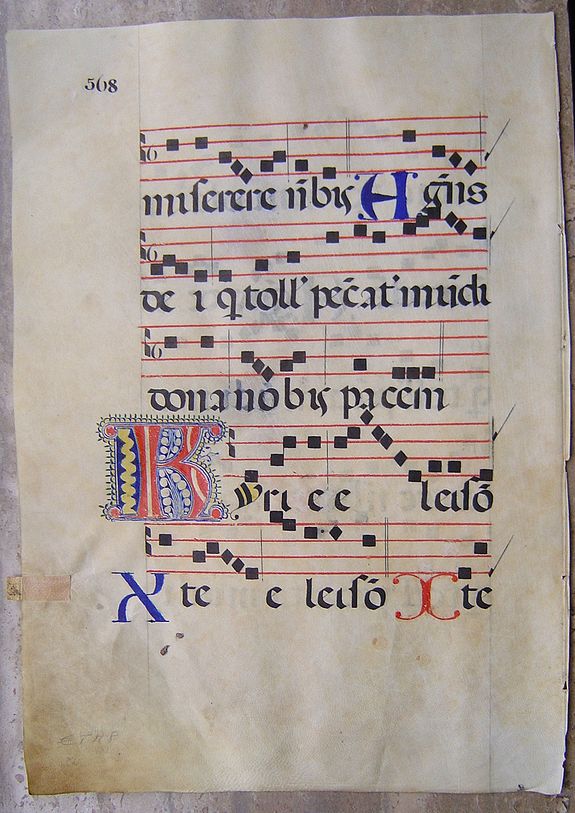 568
miserere nb̄ꝭ Agn̄s
de i q toll' pec̄at' mūdi
dona nobꝭ pacem
Kyri e e leisō
Xte e leisō Xte